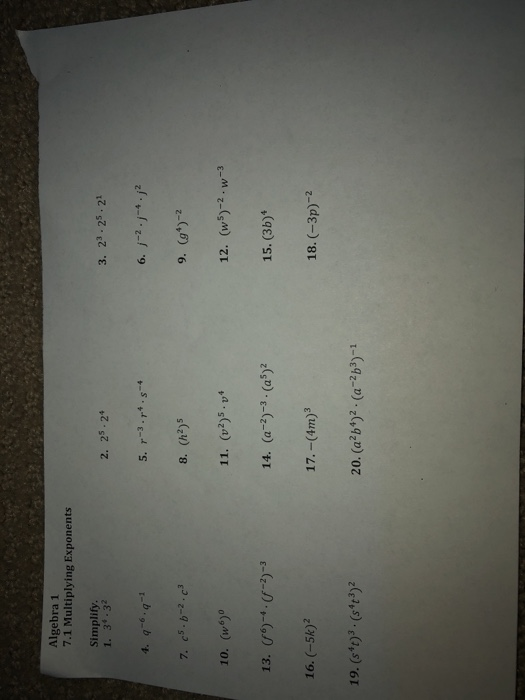 Algebra 1
7.1 Multiplying Exponents
Simplify.
1. 3⁴ · 3² 2. 2⁵ · 2⁴ 3. 2³ · 2⁵ · 2¹
4. q⁻⁶ · q⁻¹ 5. r⁻³ · r⁴ · s⁻⁴ 6. j⁻² · j⁻⁴ · j²
7. c⁵ · b⁻² · c³ 8. (h²)⁵ 9. (g⁴)⁻²
10. (w⁶)⁰ 11. (v²)⁵ · v⁴ 12. (w⁵)⁻² · w⁻³
13. (f⁶)⁻⁴ · (f⁻²)⁻³ 14. (a⁻²)⁻³ · (a⁵)² 15. (3b)⁴
16. (−5k)² 17. −(4m)³ 18. (−3p)⁻²
19. (s⁴t)³ · (s⁴t³)² 20. (a²b⁴)² · (a⁻²b³)⁻¹